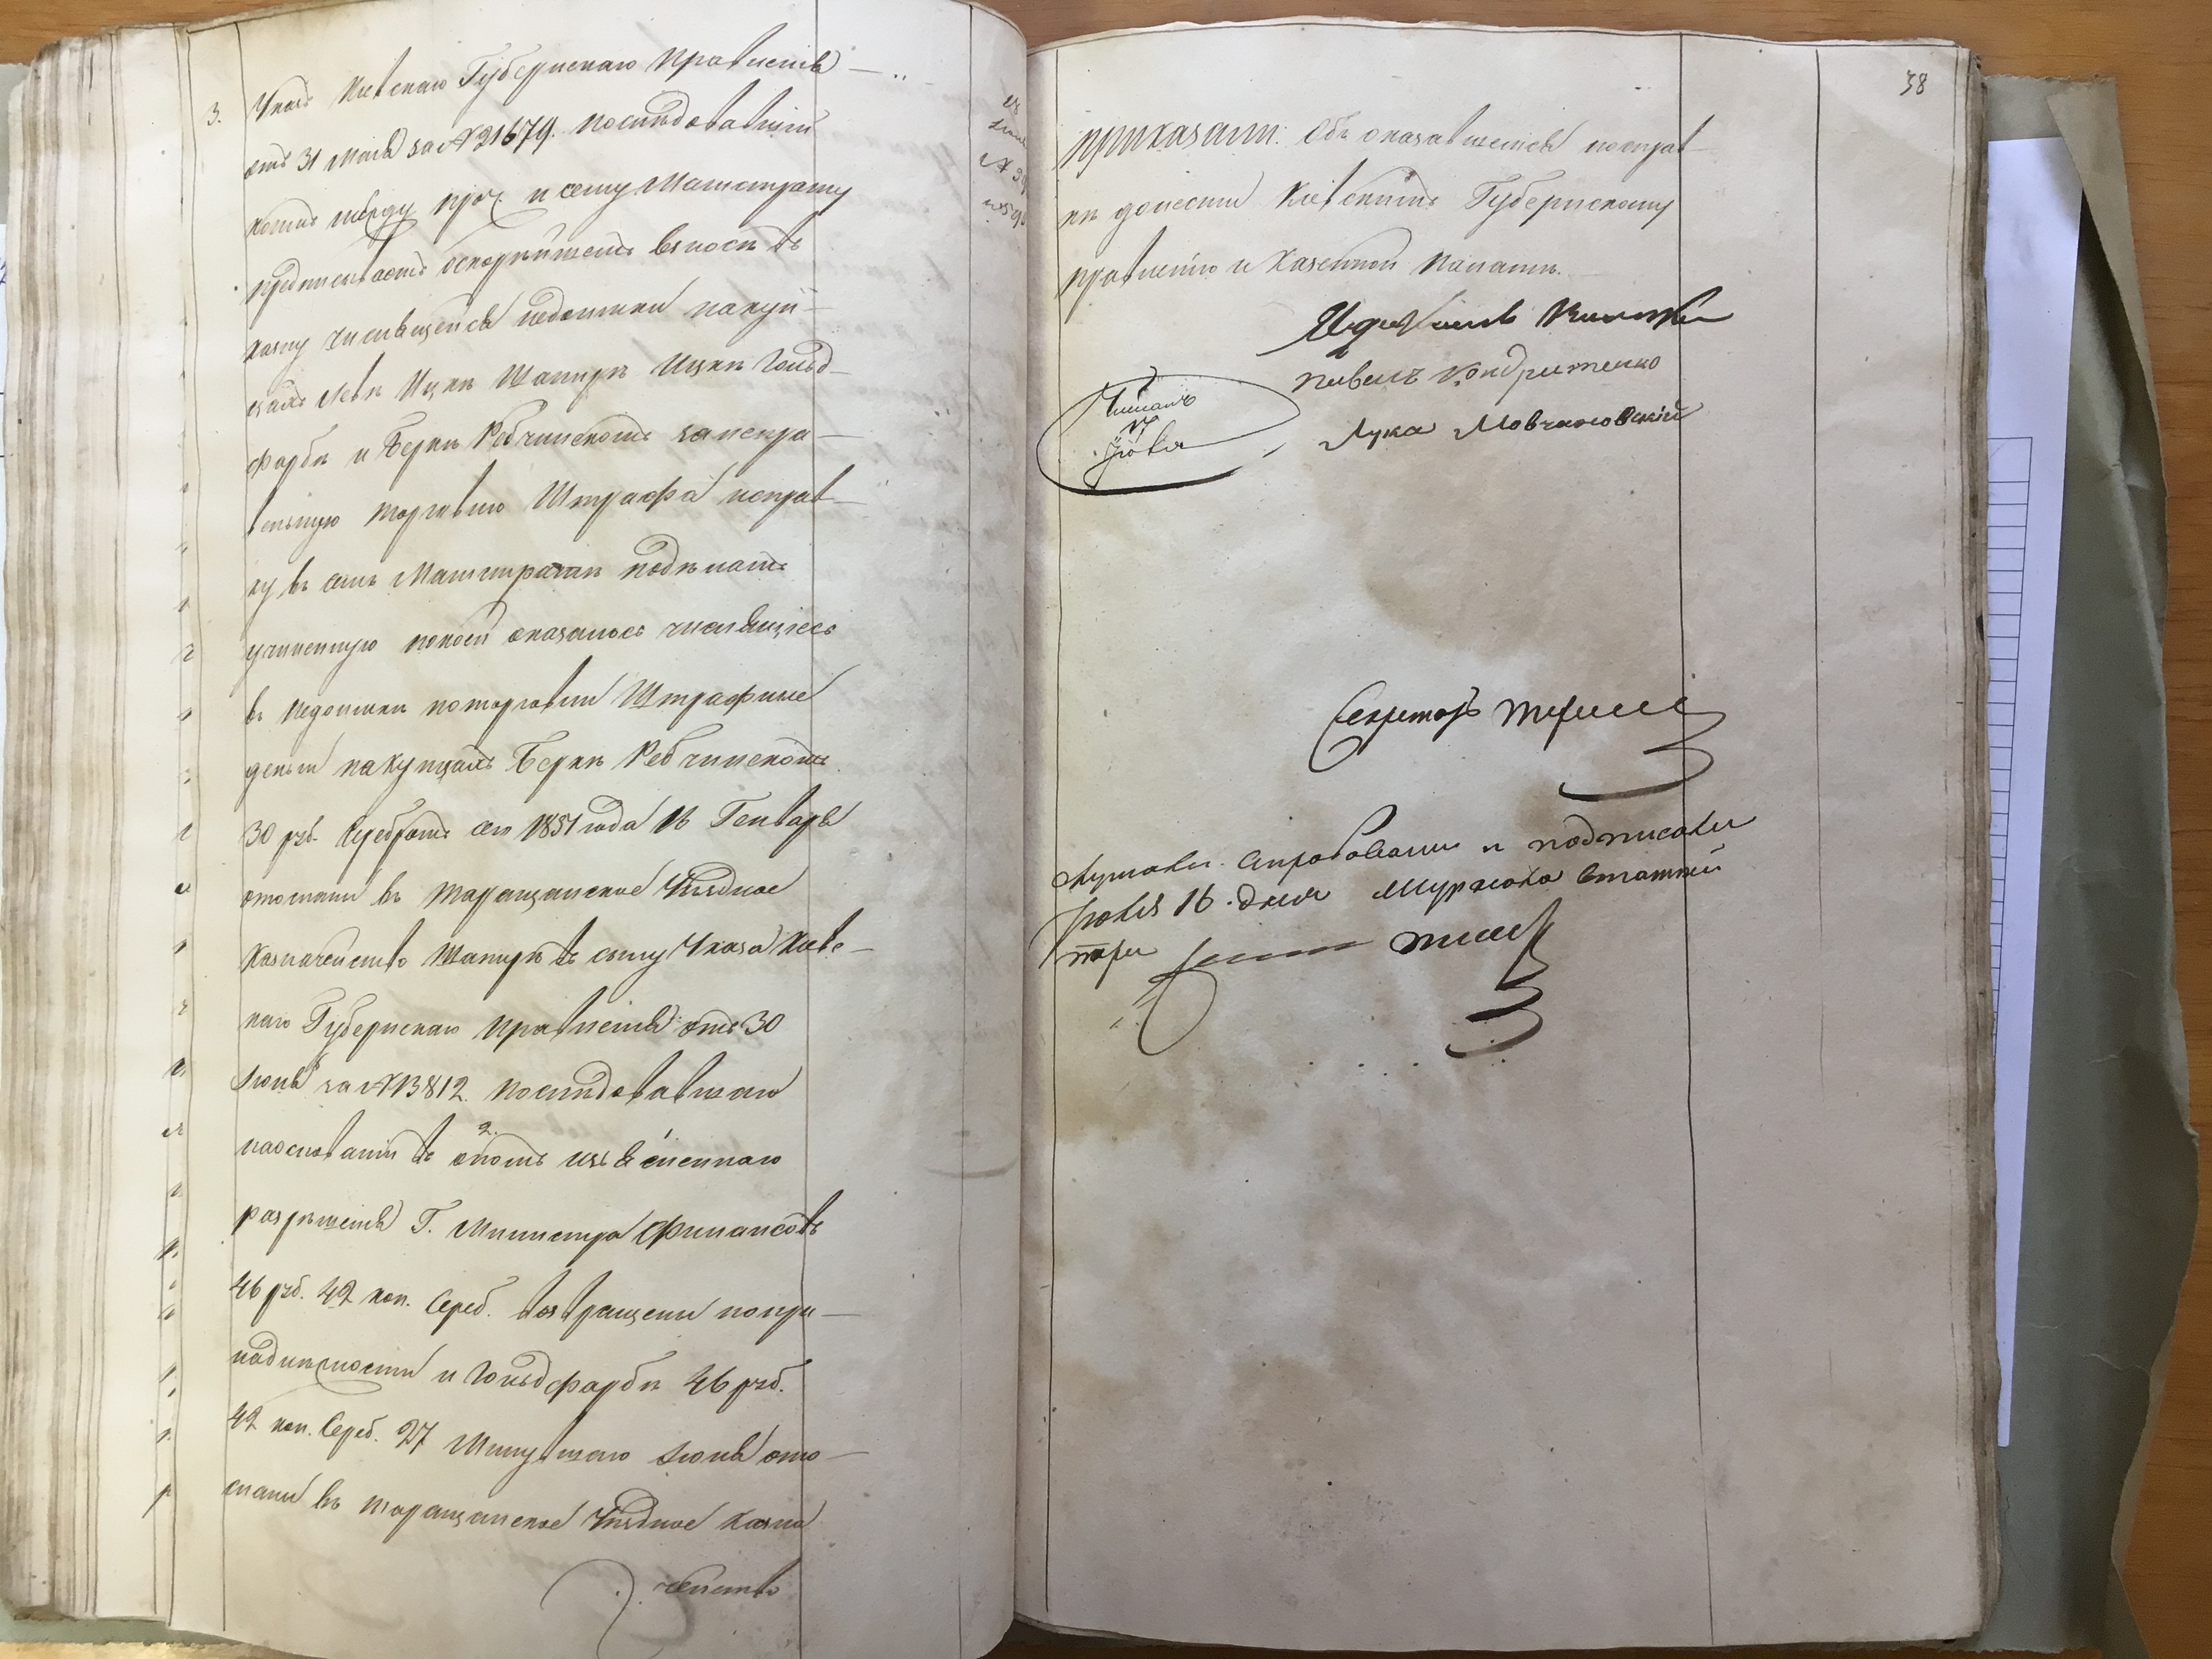 3. Указъ Кіевскаго Губернскаго Правленія
отъ 31 Маія за №21679. послѣдовавшій
коимъ между проч. и сему Магистрату
предписываетъ оскорѣйшемъ взносѣ въ
казну числящейся недоимки накуп-
цахъ Ицкѣ Шапирѣ Ицкѣ Гольд-
фарбѣ и Беркѣ Ребчинскомъ занепра-
вильную торговлю Штрафа справ-
ку въ семъ Магистратѣ
учиненную покоей оказалось числящіеся
въ недоимкѣ поторговли Штрафные
деньги накупцахъ Беркѣ Ребчинскомъ
30 руб. Серебромъ сего 1851 года 16 Генваря
отосланы въ Таращанское Уѣздное
Казначейство Шапирѣ въ силу Указа Кіевс-
каго Губернскаго Правленія отъ 30
Іюня за №13812. послѣдовавшаго
наоснованіи въ ономъ изъясненнаго
2.
разрѣшенія Г. Министра Финансовъ
46 руб. 42 коп. Сереб. возвращены попри-
надлежности и Гольдфарбѣ 46 руб.
42 коп. Сереб. 27 Минувшаго Іюня ото-
сланы въ Таращанское Уѣздное Казна
чейство
38
приказали: Объ оказавшемся посправ-
кѣ донести Кіевскимъ Губернскому
правленію и Казенной Палатѣ.
Павелъ Кондратенко
Лука Мовчановскій
Читалъ
17
Іюля
Секретарь
Слушали. и подписали
Іюля 16. дня Журнала статьи
три